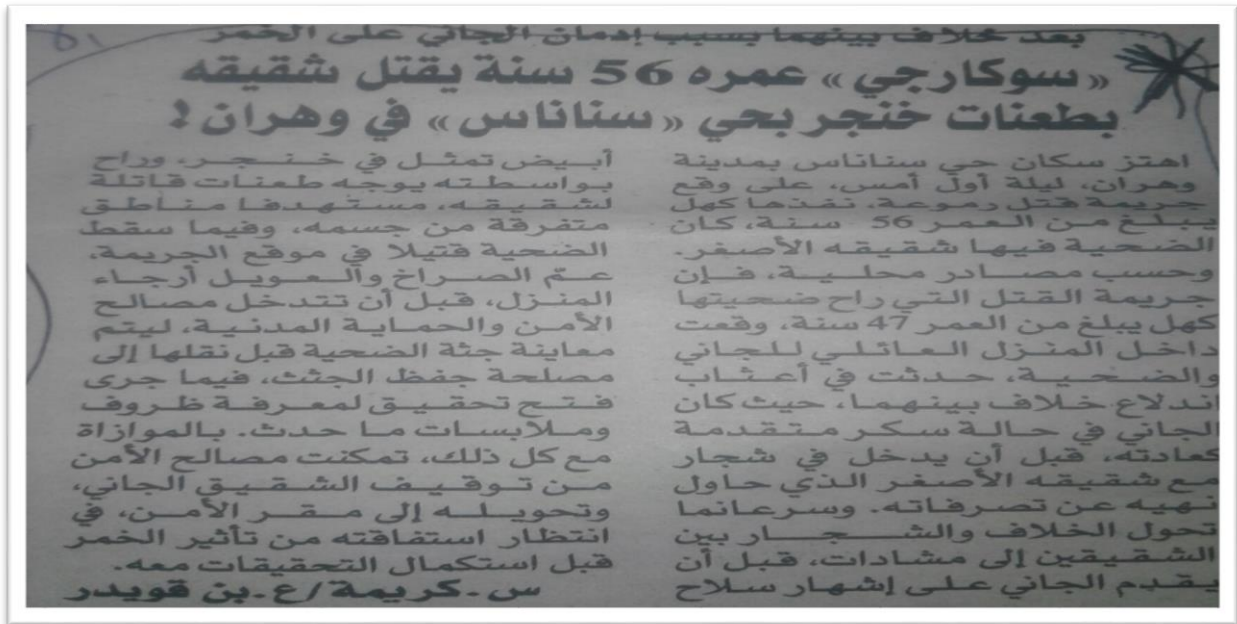 بعد خلاف بينهما بسبب إدمان الجاني على الخمر
«سوكارجي» عمره 56 سنة يقتل شقيقه
بطعنات خنجر بحي «سناناس» في وهران!
اهتز سكان حي سناناس بمدينة
وهران، ليلة أول أمس، على وقع
جريمة قتل رموعة، نفذها كهل
يبلغ من العمر 56 سنة، كان
الضحية فيها شقيقه الأصغر.
وحسب مصادر محلية، فإن
جريمة القتل التي راح ضحيتها
كهل يبلغ من العمر 47 سنة، وقعت
داخل المنزل العائلي للجاني
والضحية، حدثت في أعثاب
اندلاع خلاف بينهما، حيث كان
الجاني في حالة سكر متقدمة
كعادته، قبل أن يدخل في شجار
مع شقيقه الأصغر الذي حاول
نهيه عن تصرفاته. وسرعانما
تحول الخلاف والشجار بين
الشقيقين إلى مشادات، قبل أن
يقدم الجاني على إشهار سلاح
أبيض تمثل في خنجر، وراح
بواسطته يوجه طعنات قاتلة
لشقيقه، مستهدفا مناطق
متفرقة من جسمه، وفيما سقط
الضحية قتيلا في موقع الجريمة،
عمّ الصراخ والعويل أرجاء
المنزل، قبل أن تتدخل مصالح
الأمن والحماية المدنية، ليتم
معاينة جثة الضحية قبل نقلها إلى
مصلحة حفظ الجثث، فيما جرى
فتح تحقيق لمعرفة ظروف
وملابسات ما حدث. بالموازاة
مع كل ذلك، تمكنت مصالح الأمن
من توقيف الشقيق الجاني،
وتحويله إلى مقر الأمن، في
انتظار استفاقته من تأثير الخمر
قبل استكمال التحقيقات معه.
س.كريمة/ع.بن قويدر